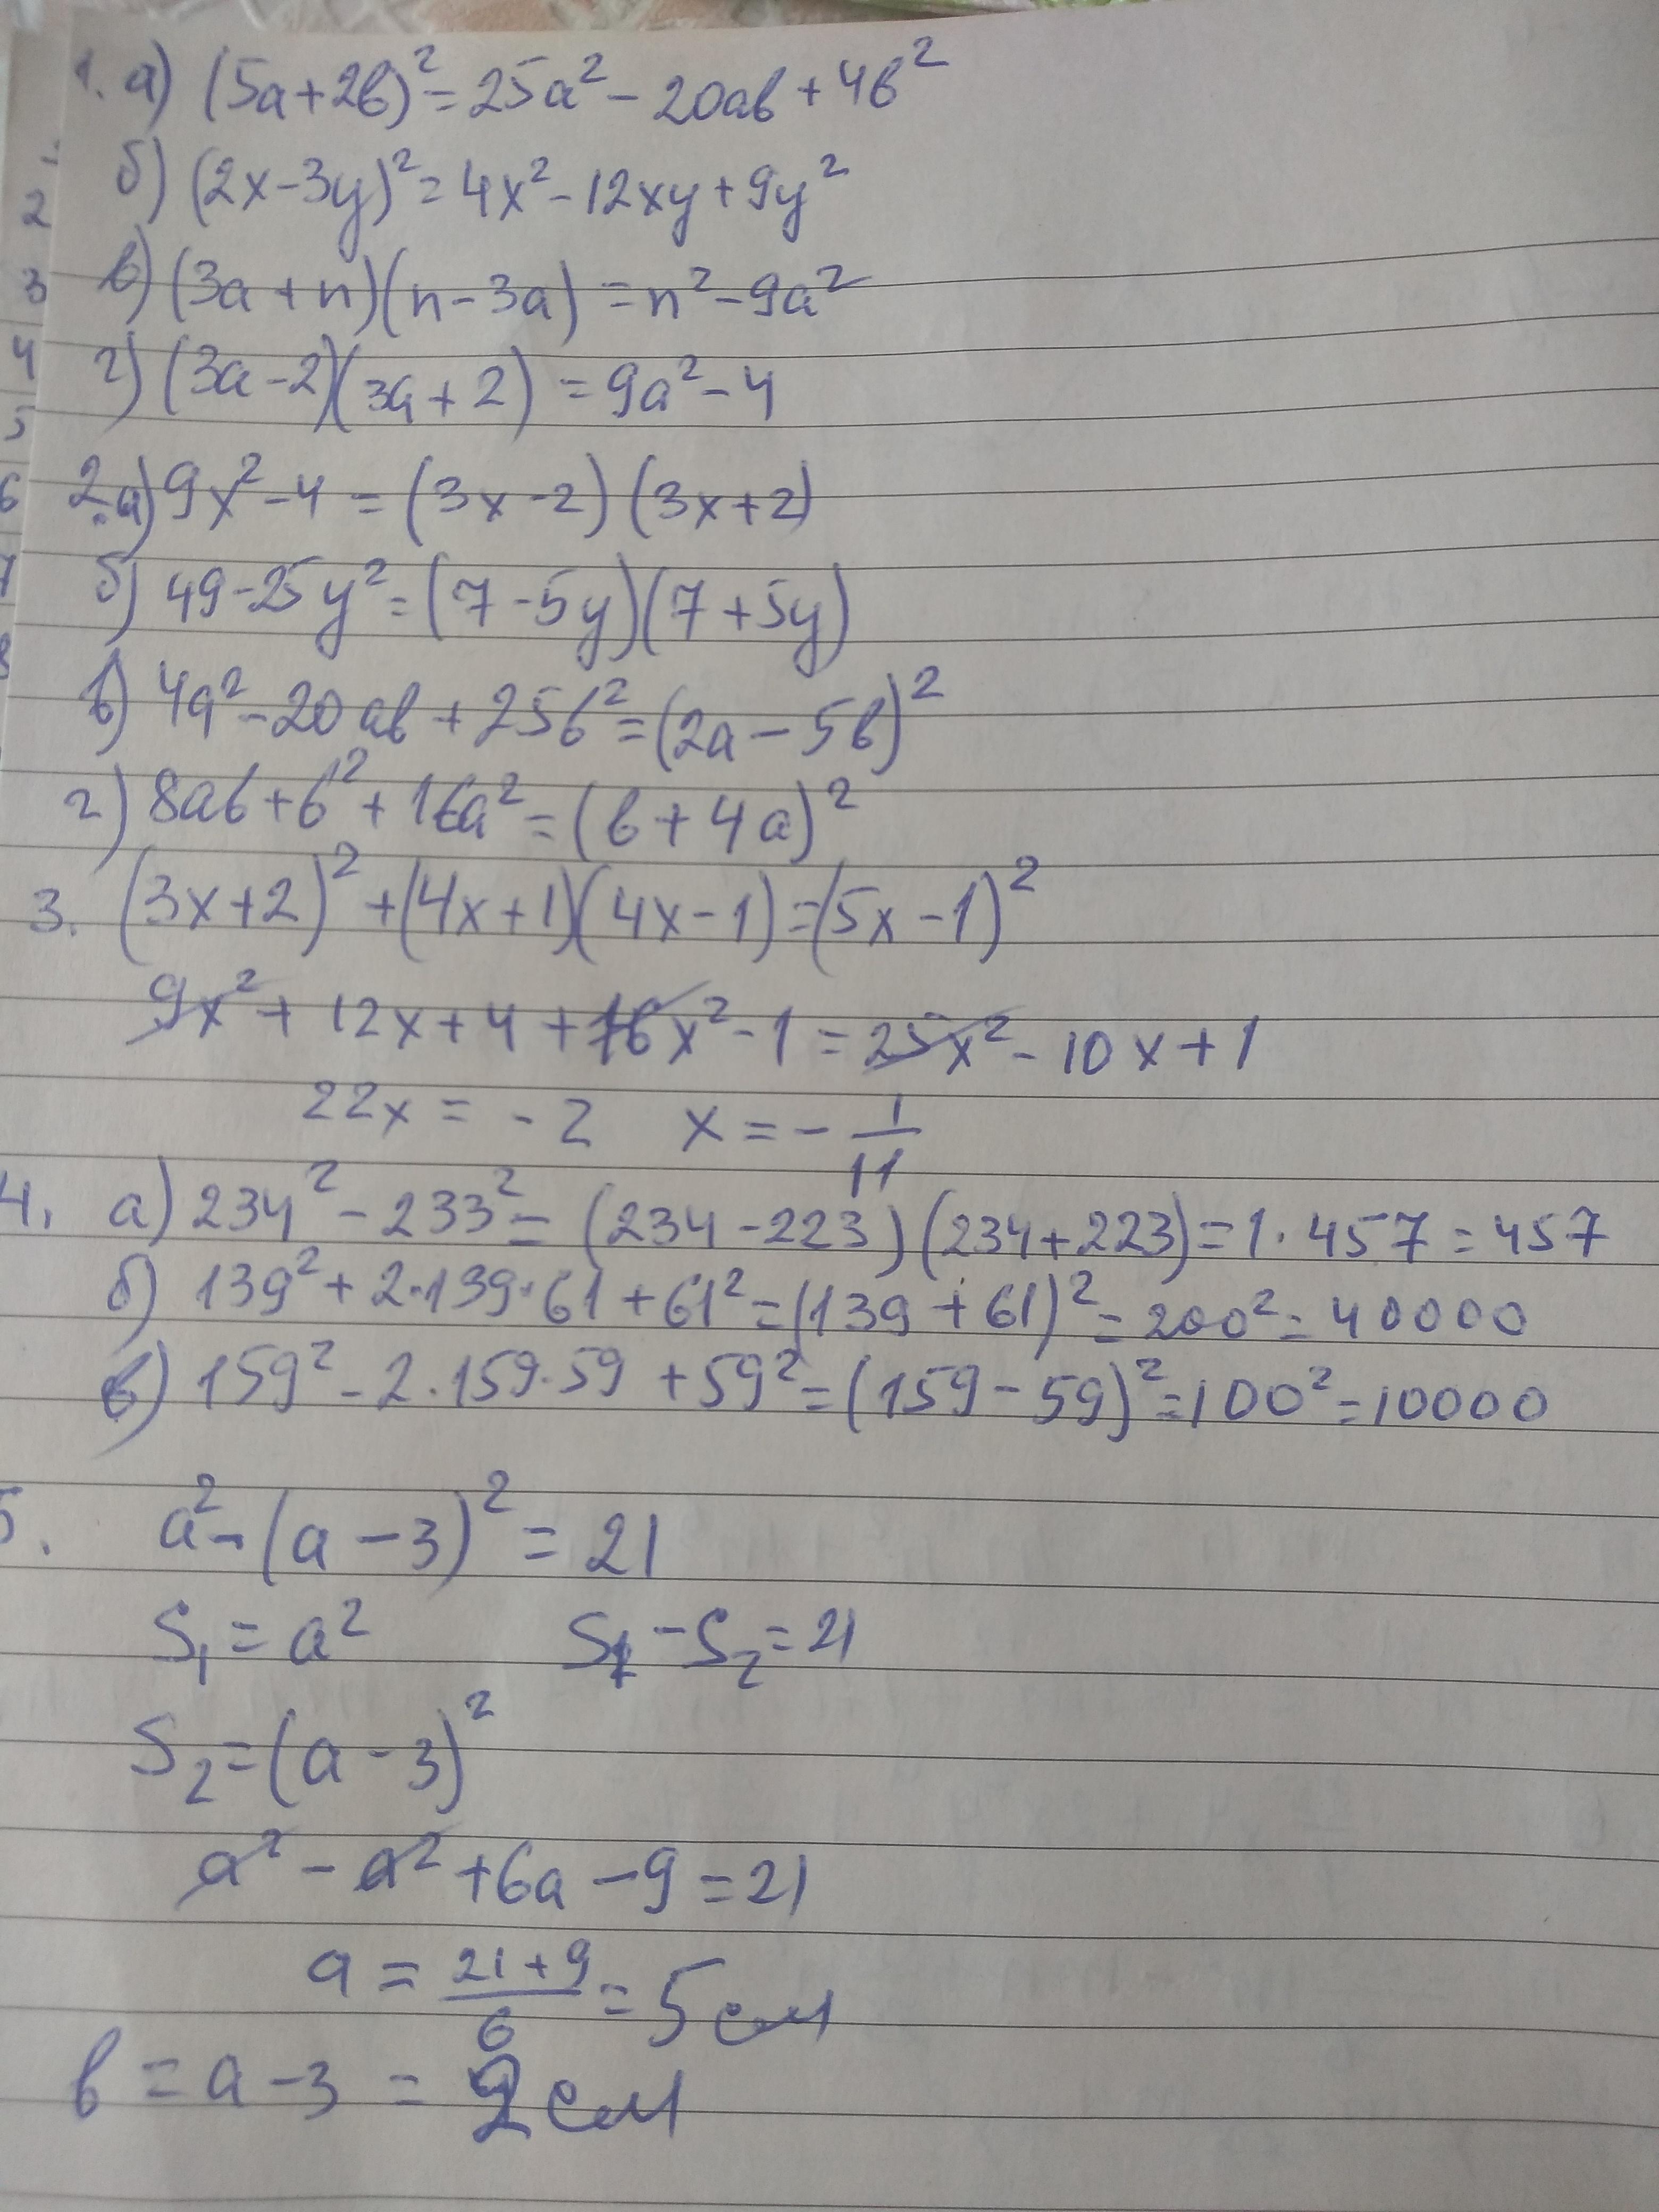 1. а) (5a+2b)² = 25a² - 20ab + 4b²
б) (2x-3y)² = 4x² - 12xy + 9y²
в) (3a+n)(n-3a) = n² - 9a²
г) (3a-2)(3a+2) = 9a² - 4
2. а) 9x² - 4 = (3x-2)(3x+2)
б) 49 - 25y² = (7-5y)(7+5y)
в) 4a² - 20ab + 25b² = (2a-5b)²
г) 8ab + b² + 16a² = (b+4a)²
3. (3x+2)² + (4x+1)(4x-1) = (5x-1)²
9x² + 12x + 4 + 16x² - 1 = 25x² - 10x + 1
22x = -2 x = - 1/11
4. а) 234² - 233² = (234-223)(234+223) = 1·457 = 457
б) 139² + 2·139·61 + 61² = (139+61)² = 200² = 40000
в) 159² - 2·159·59 + 59² = (159-59)² = 100² = 10000
5. a² - (a-3)² = 21
S₁ = a² S₁ - S₂ = 21
S₂ = (a-3)²
a² - a² + 6a - 9 = 21
a = (21+9)/6 = 5 см
b = a - 3 = 2 см
2
3
4
5
6
7
8